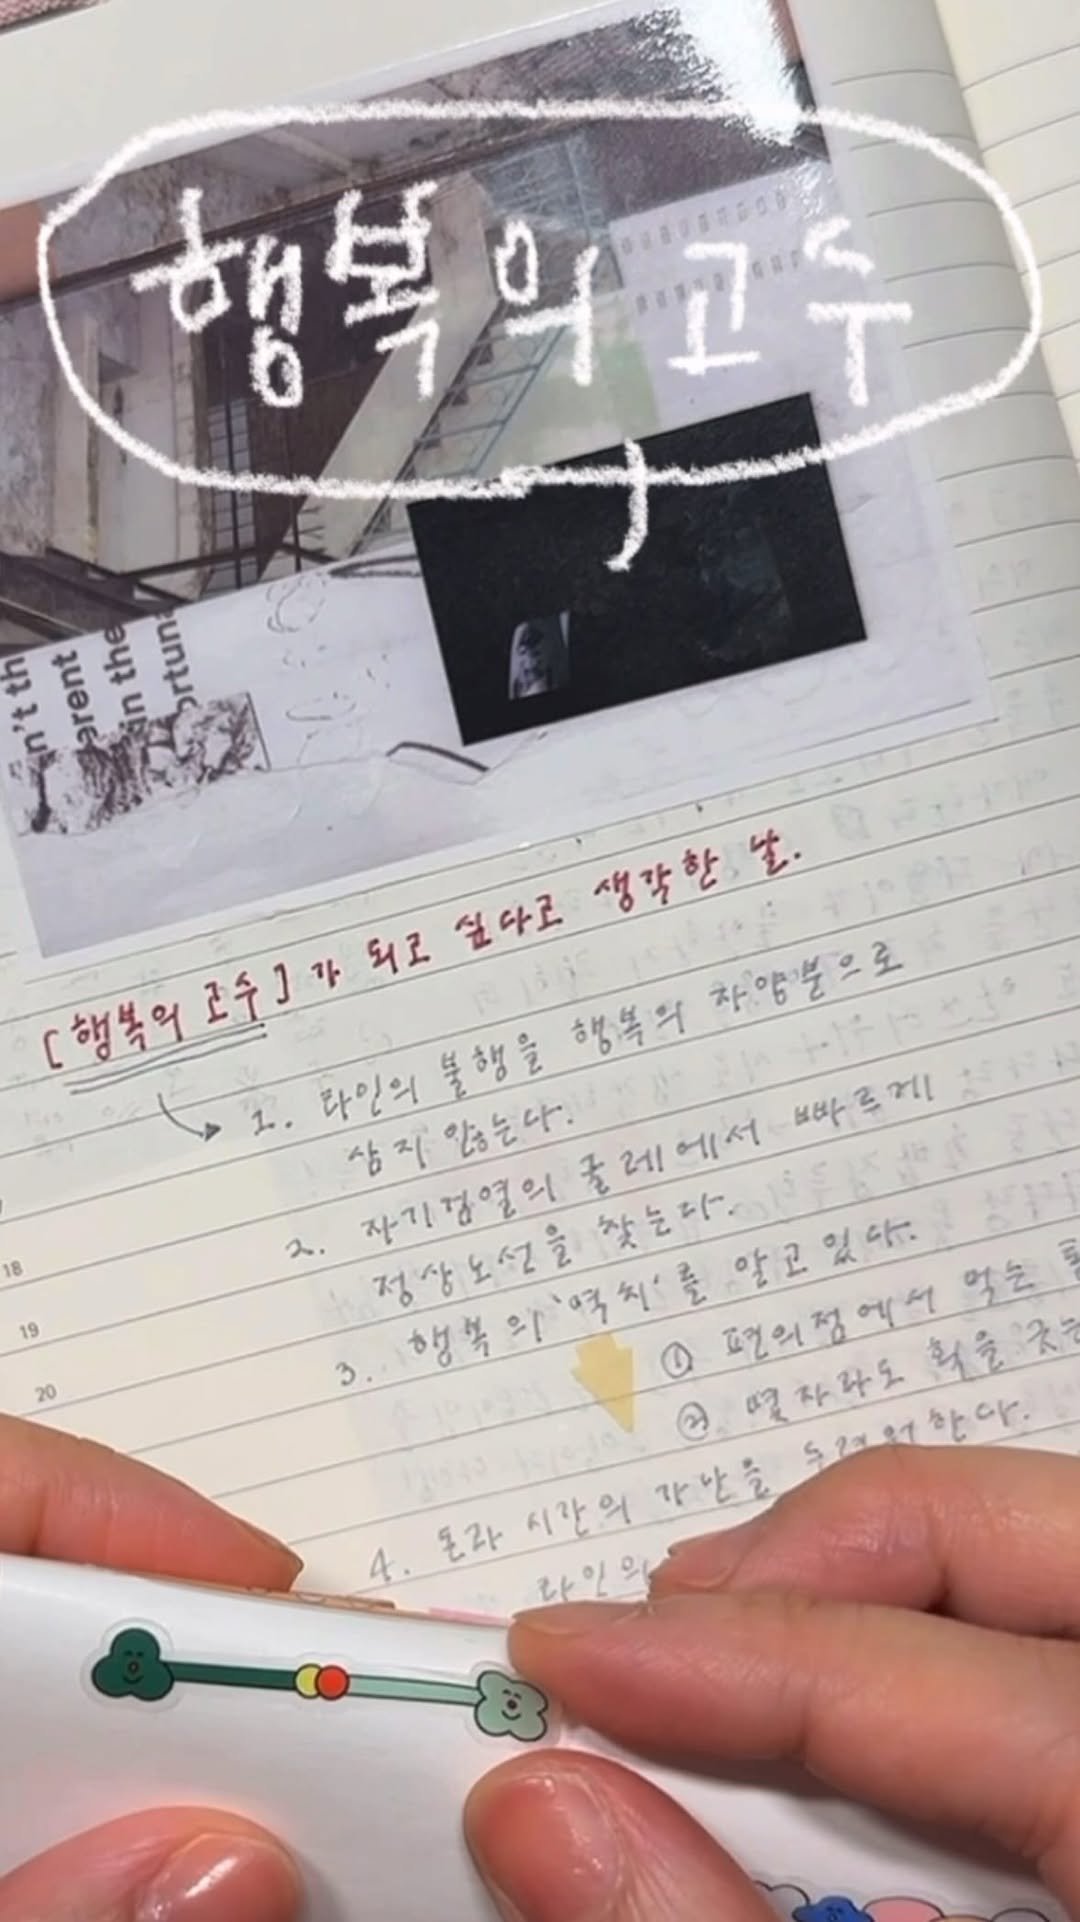 행복의 고수,
n't th
arent
in the
ortuna
[행복의 고수]가 되고 싶다고 생각한 날.
1. 타인의 불행을 행복의 자양분으로
삼지 않는다.
2. 자기검열의 굴레에서 빠르게
정상노선을 찾는다.
3. 행복의 '역치'를 알고 있다.
① 편의점에서 먹는
② 몇 자라도 획을 긋는
4. 돈과 시간의 가난을 두려워한다.
타인의
18
19
20